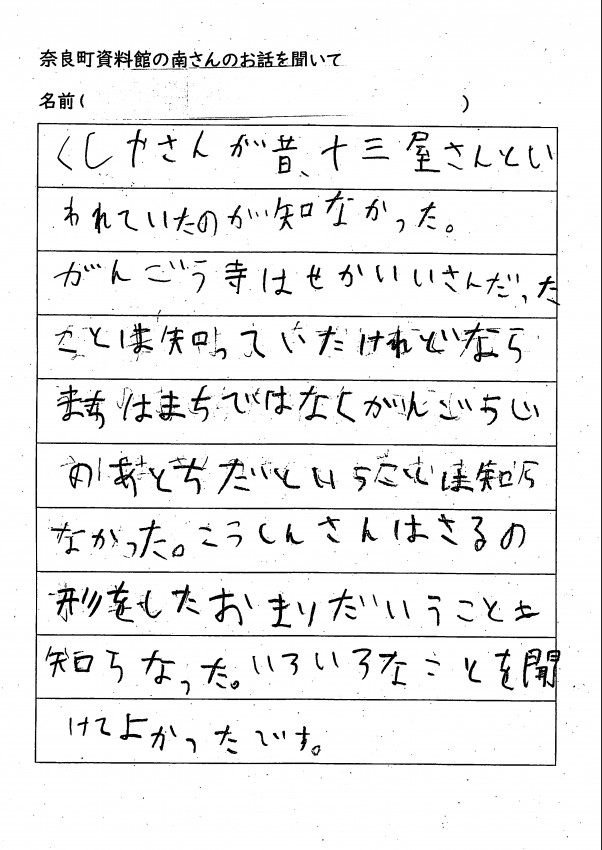 奈良町資料館の南さんのお話を聞いて
名前( )
くしやさんが昔、十三屋さんとい
われていたのが知なかった。
がんごう寺はせかいいさんだった
ことは知っていたけれどなら
まちはまちではなくがんごうじ
のあとちだということは知ら
なかった。こうしんさんはさるの
形をしたおまりだいうことも
知らなった。いろいろなことを聞
けてよかったです。